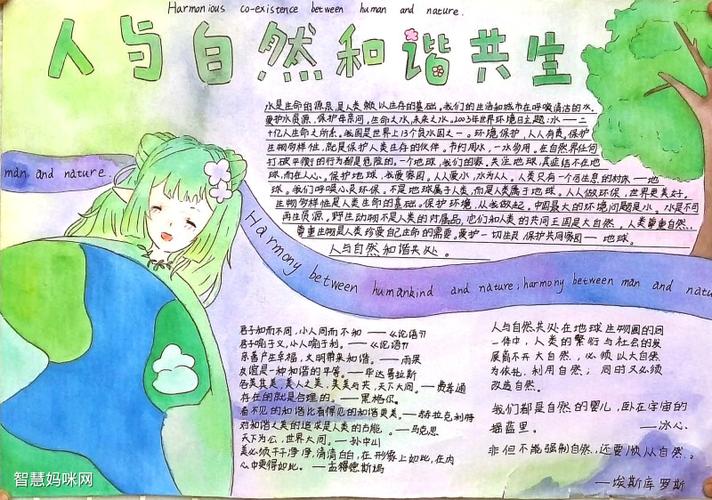 Harmonious co-existence between human and nature.
人与自然和谐共生
水是生命的源泉,是人类赖以生存的基础。我们的生活和城市在呼唤清洁的水,
爱护水资源,保护母亲河,生命之水,未来之水。2003年世界环境日主题:水——二
十亿人生命之所系。我国是世界上13个贫水国之一。环境保护,人人有责。保护
生物多样性,就是保护人类生存的伙伴。节约用水,一水多用。在自然界任何
打破平衡的行为都是危险的。一个地球,我们的家。关注地球,真正活在地
球,而在人心。保护地球,我爱家园。人人爱水,水为人人。人类只有一个可生息的村庄——地
球。我们呼唤心灵环保,不是地球属于人类,而是人类属于地球。人人做环保,世界更美好。
生物多样性是人类生命的基础。保护环境,从我做起。中国最大的环境问题是水,水是不可
再生资源。野生动物不是人类的附属品,它们和人类的共同王国是大自然,人类尊重自然,
尊重生物是人类珍爱自己生命的需要。爱护一切生灵,保护共同家园——地球。
人与自然和谐共处。
man and nature.
Harmony between humankind and nature; harmony between man and natu
君子和而不同,小人同而不和 ——《论语》
君子喻于义,小人喻于利。——《论语》
亲善产生幸福,文明带来和谐。——雨果
友谊是一种和谐的平等。——毕达哥拉斯
各美其美,美人之美,美美与共,天下大同。——费孝通
存在的就是合理的。——黑格尔
看不见的和谐比看得见的和谐更美。——赫拉克利特
对和谐人类的追求是人类的方能。——马克思
天下为公,世界大同。——孙中山
美必须干干净净,清清白白,在形象上如此,在内
心中更得如此。——孟德斯鸠
人与自然共处在地球生物圈的同
一体中,人类的繁衍与社会的发
展离不开大自然,必须以大自然
为依托,利用自然;同时又必须
改造自然。
我们都是自然的婴儿,卧在宇宙的
摇蓝里。——冰心
非但不能强制自然,还要顺从自然。
——埃斯库罗斯
智慧妈咪网